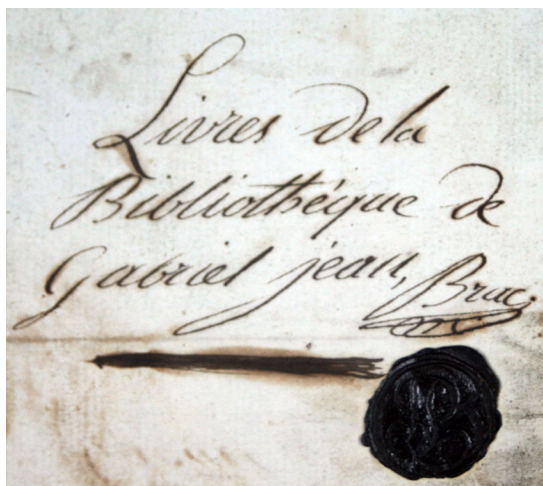 Livres de la
Bibliothéque de
Gabriel jean, Brac